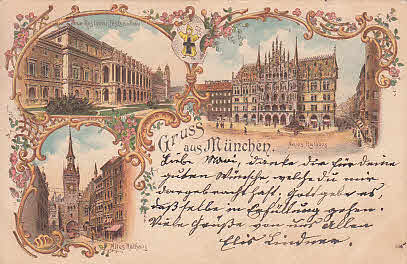 Gruss
aus München.
Neues Rathaus
Altes Rathaus
Liebe Mari, danke dir für deine
guten Wünsche welche du mir
dargebracht hast, Gott gebe es,
daß selbe in Erfüllung gehen.
Viele Grüße von uns Allen
Elis Lindner.